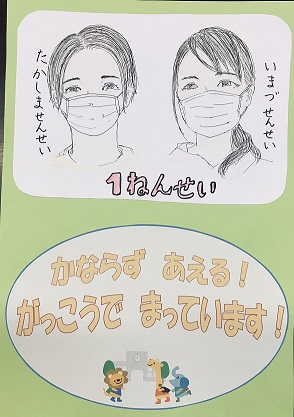 たかしませんせい
いまづせんせい
1ねんせい
かならず あえる！
がっこうで まっています！